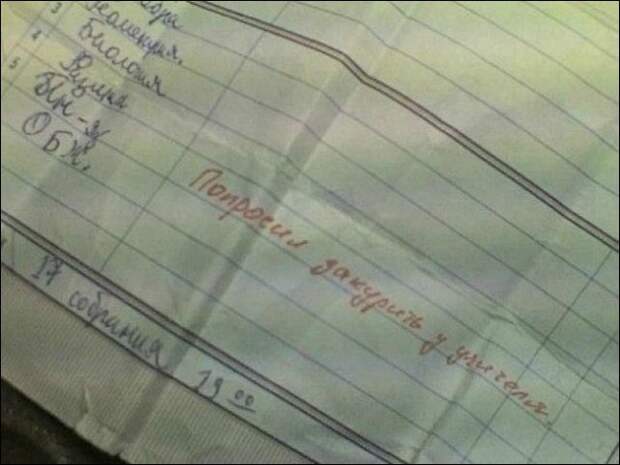 3 Геометрия,
4 Биология
Физика
5
ОБЖ,
Попросил закурить у учителя.
17 собрания 19 00